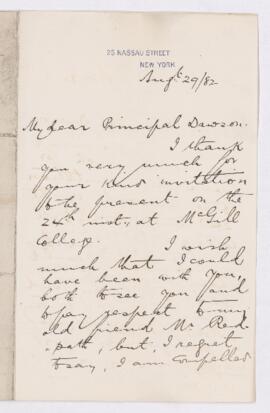 25 NASSAU STREET
NEW YORK
Augt 29/82
My dear Principal Dawson.
I thank
you very much for
your kind invitation
to be present on the
24th inst, at McGill
College.
I wish
much that I could
have been with you,
both to see you and
to pay respect to my
old friend Mr Red-
path, but, I regret
to say, I am compelled